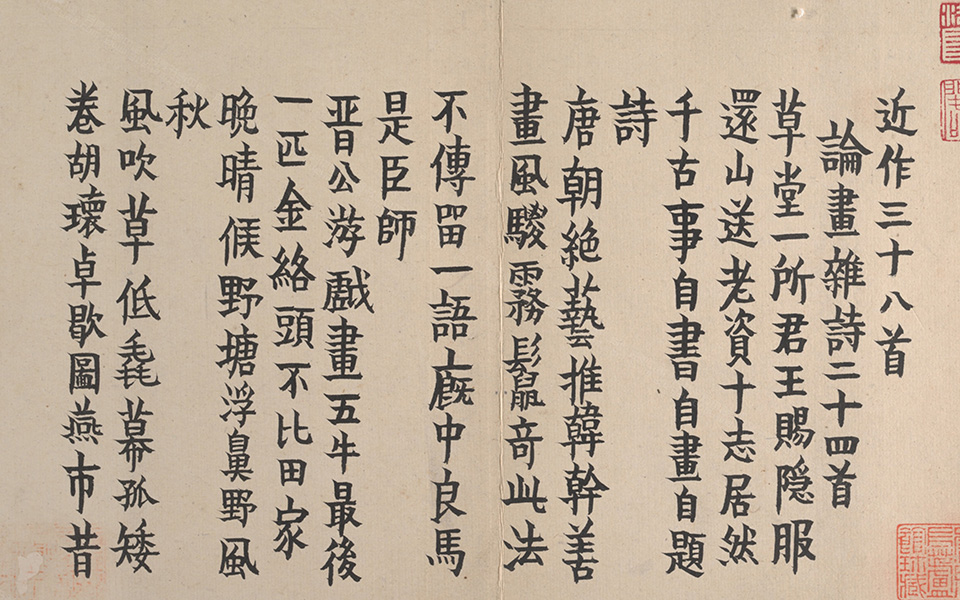 近作三十八首
論畫雜詩二十四首
草堂一所君王賜隠服
還山送老資十志居然
千古事自書自畫自題
詩
唐朝絶藝推韓幹善
畫風騣霧鬛竒此法
不傳留一語廄中良馬
是臣師
晋公游戲畫五牛最後
一匹金絡頭不比田家
晚晴候野塘浮鼻野風
秋
風吹草低毳幕孤矮
卷胡瓌卓歇圖燕市昔